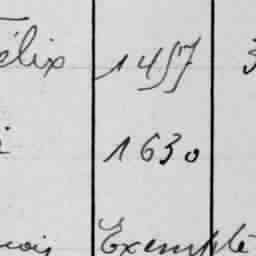 élix 1457 3
i 1630
çois Exempté